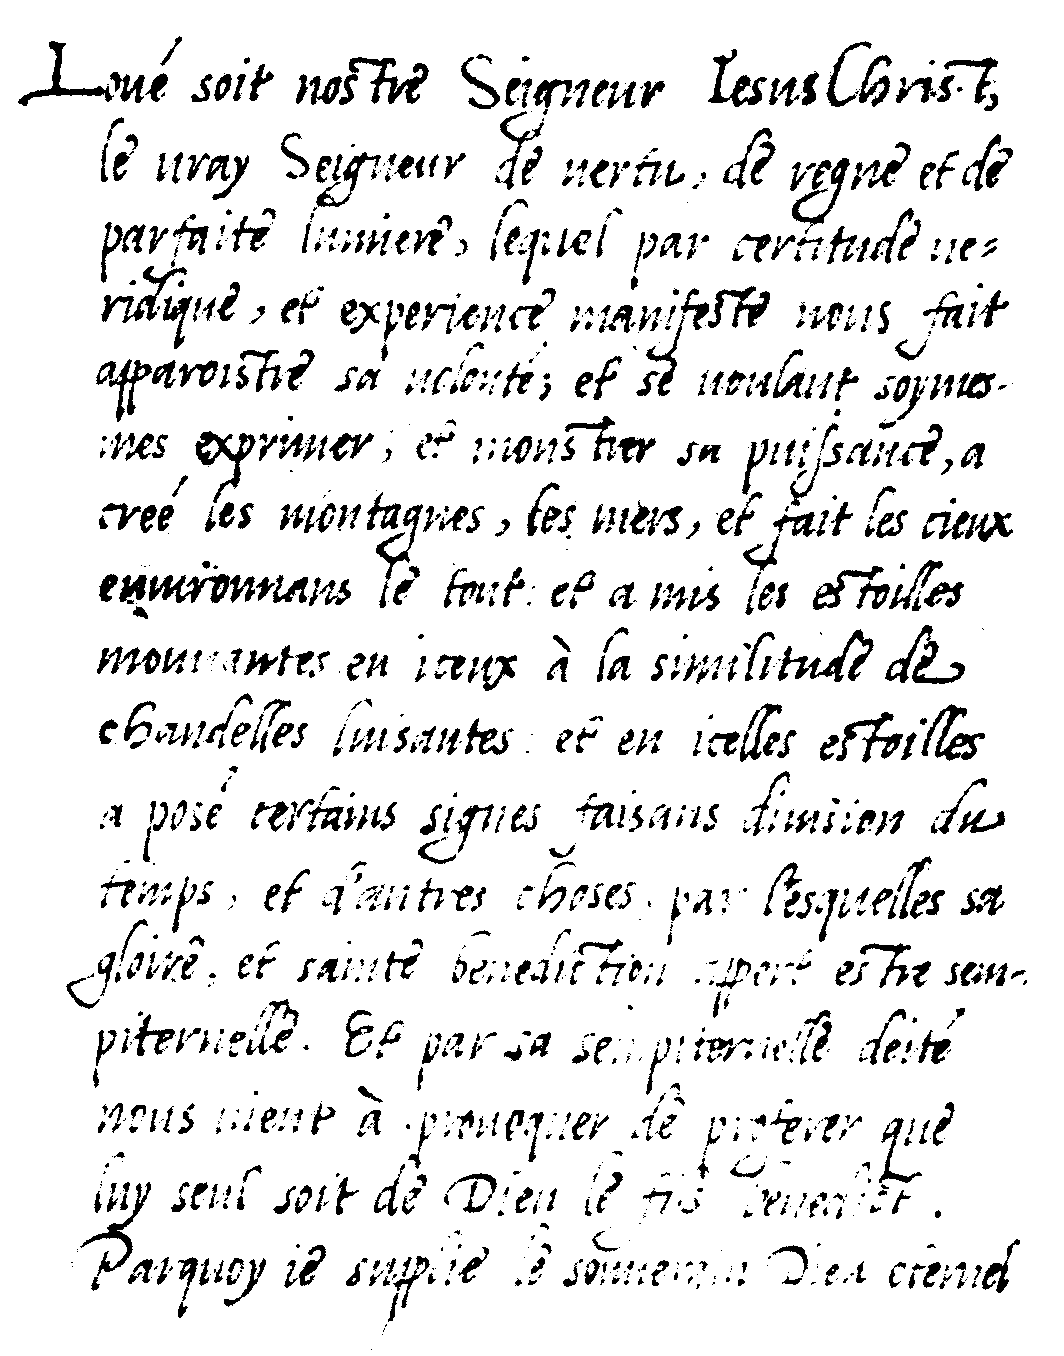 Loué soit nostre Seigneur Iesus Christ,
le vray Seigneur de vertu, de regne et de
parfaite lumiere, lequel par certitude ve-
ridique, et experience manifeste nous fait
apparoistre sa volonté; et se voulant soymes-
mes exprimer, et monstrer sa puissance, a
creé les montagnes, les mers, et fait les cieux
environnans le tout: et a mis les estoilles
mouuantes en iceux à la similitude de
chandelles luisantes: et en icelles estoilles
a posé certains signes faisans diuision du
temps, et d'autres choses, par lesquelles sa
gloire, et sainte benediction appert estre sem-
piternelle. Et par sa sempiternelle deité
nous vient à prouoquer de proferer que
luy seul soit de Dieu le fils benedict.
Parquoy ie supplie le souuerain Dieu eternel